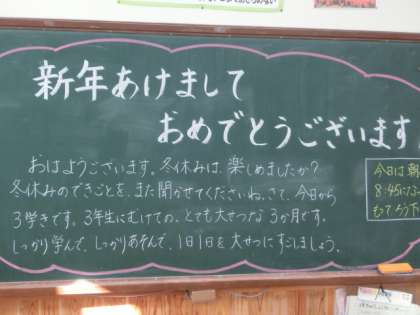 新年あけまして
おめでとうございます
おはようございます。冬休みは、楽しめましたか?
冬休みのできごとを、また聞かせてくださいね。さて、今日から
3学きです。3年生にむけての、とても大せつな3か月です。
しっかり学んで、しっかりあそんで、1日1日を大せつにすごしましょう。
今日は朝
8:45に
もってろう下